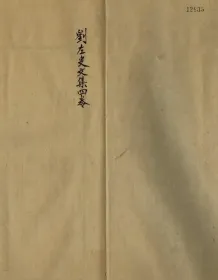 劉左史文集四卷